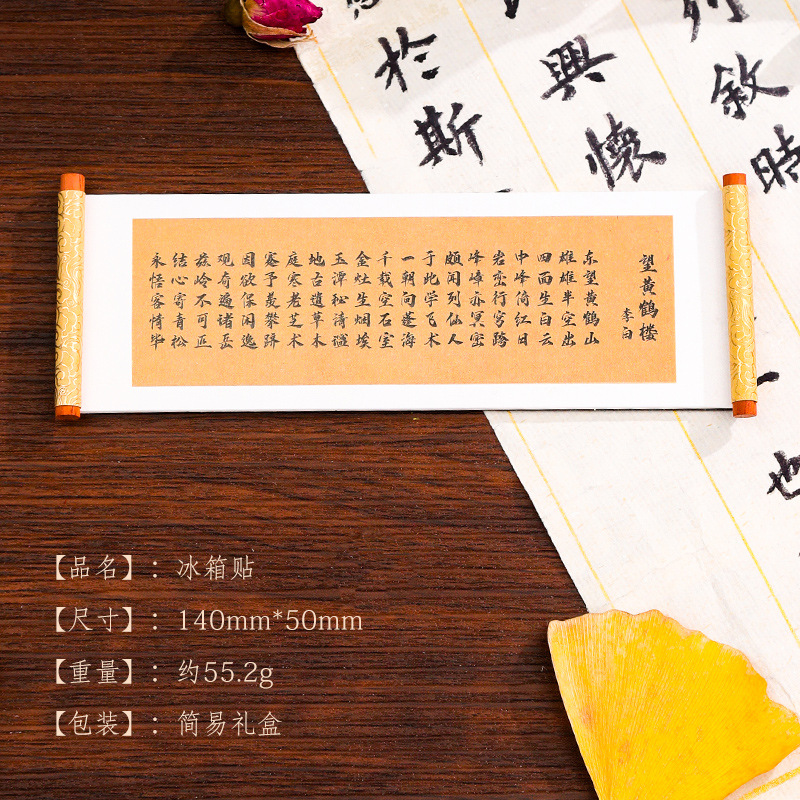 列敘時
興懷
於斯
也
望黄鹤楼
李白
东望黄鹤山
雄雄半空出
四面生白云
中峰倚红日
岩峦行穹跨
峰嶂亦冥密
颇闻列仙人
于此学飞术
一朝向蓬海
千载空石室
金灶生烟埃
玉潭秘清谧
地古遗草木
庭寒老芝术
蹇予羡攀跻
因欲保闲逸
观奇遍诸岳
兹岭不可匹
结心寄青松
永悟客情毕
【品名】：冰箱贴
【尺寸】：140mm*50mm
【重量】：约55.2g
【包装】：简易礼盒